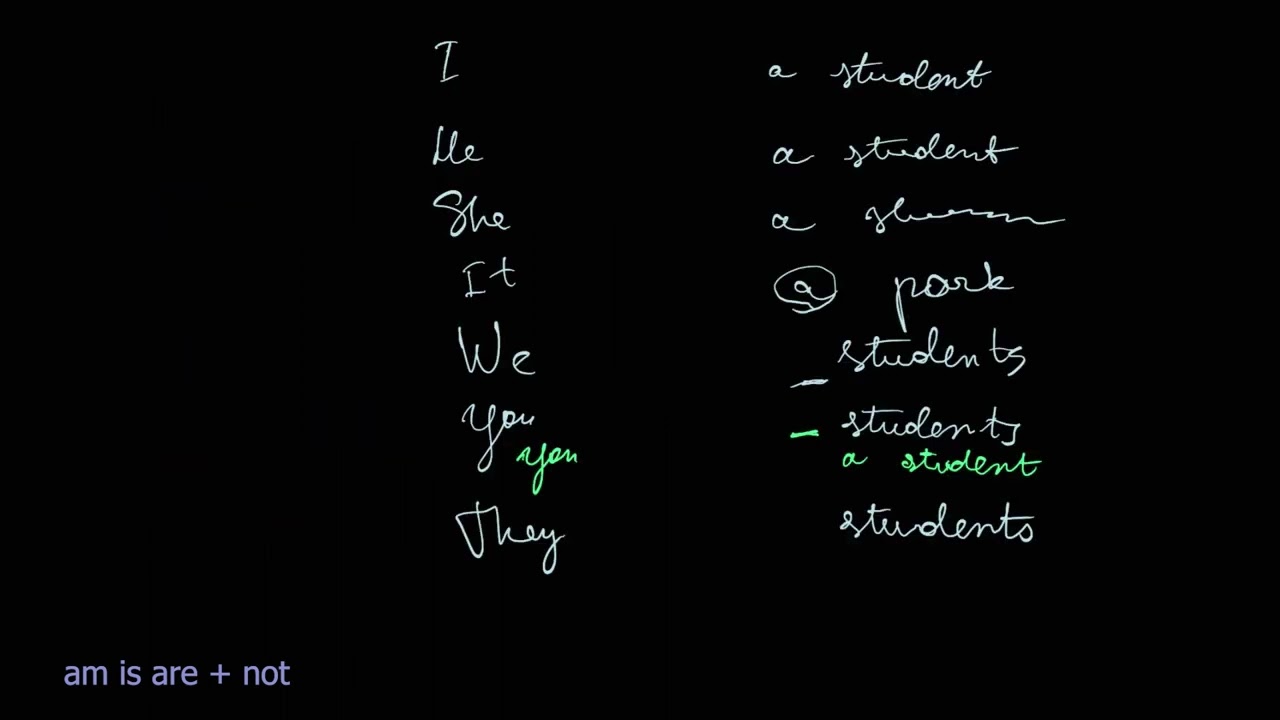 I a student
He a student
She a
It a park
We _ students
you - students
you a student
They students
am is are + not